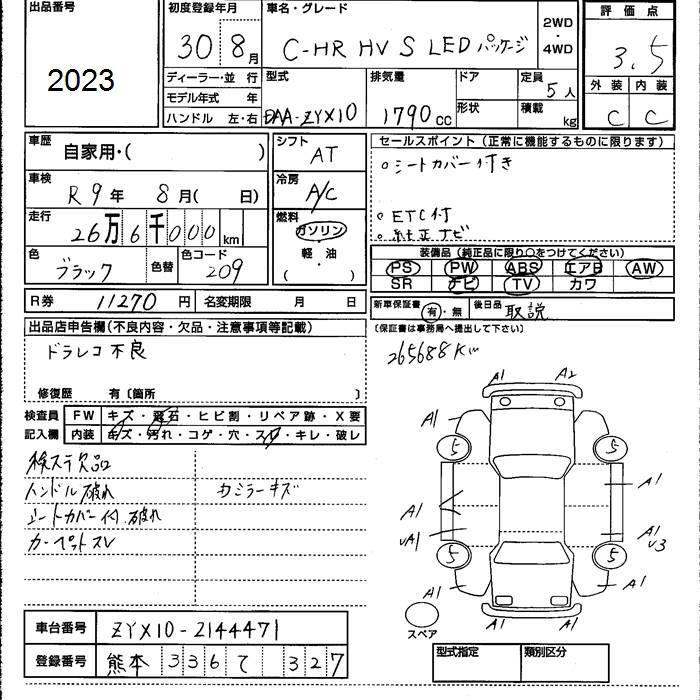 出品番号
2023
初度登録年月
30年8月
車名・グレード
C-HR HV S LED パッケージ
2WD
・
4WD
評価点
3.5
外装 内装
C C
ディーラー・並 行
モデル年式 年
ハンドル 左・右
型式
DAA-ZYX10
排気量
1790cc
ドア
形状
定員
5人
積載
kg
車歴
自家用・( )
車検
R9年 8月( 日)
走行
26万6千000km
色
ブラック
色替
色コード
209
シフト
AT
冷房
A/C
燃料
ガソリン
軽・油
( )
セールスポイント(正常に機能するものに限ります)
○シートカバー付き
○ETC付
○純正ナビ
装備品(純正品に限り○をつけてください)
PS PW ABS エアB AW
SR ナビ TV カワ
R券 11270円
名変期限 月 日
新車保証書 有・無
後日品 取説
(保証書は事務局へ提出して下さい)
出品店申告欄(不良内容・欠品・注意事項等記載)
ドラレコ不良
修復歴 有〔箇所 〕
265688Km
検査員
記入欄
FW キズ・飛石・ヒビ割・リペア跡・X要
内装 キズ・汚れ・コゲ・穴・スレ・キレ・破レ
検ステ欠品
ハンドル破れ
カミラーキズ
シートカバー付.破れ
カーペットスレ
A1 A2
A1 A1
5 5
A1 A1
UA1 A1
U3
5 5
A1 A1
A1 A1
スペア
車台番号 ZYX10-2144471
登録番号 熊本 336 て 327
型式指定 類別区分